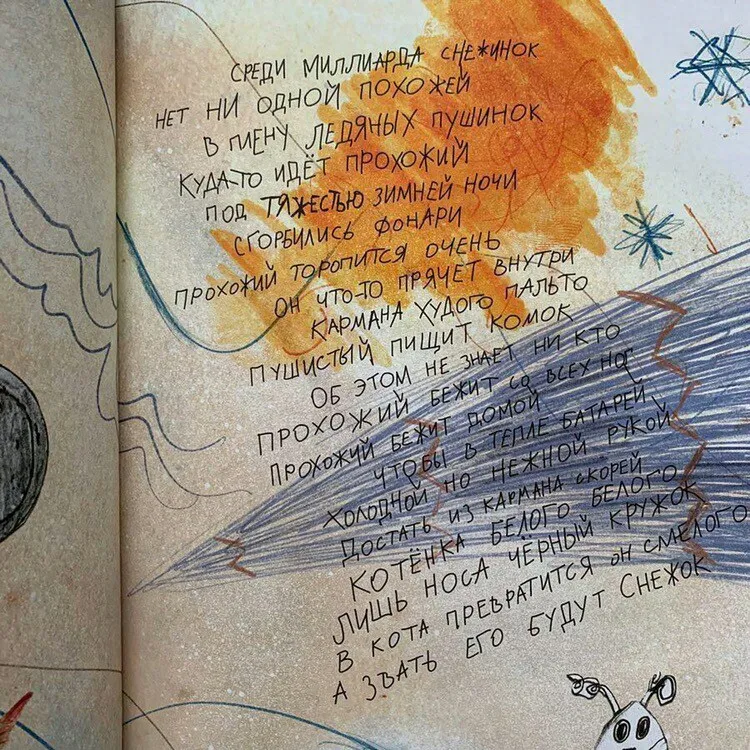 СРЕДИ МИЛЛИАРДА СНЕЖИНОК
НЕТ НИ ОДНОЙ ПОХОЖЕЙ
В ПЛЕНУ ЛЕДЯНЫХ ПУШИНОК
КУДА-ТО ИДЁТ ПРОХОЖИЙ
ПОД ТЯЖЕСТЬЮ ЗИМНЕЙ НОЧИ
СГОРБИЛИСЬ ФОНАРИ
ПРОХОЖИЙ ТОРОПИТСЯ ОЧЕНЬ
ОН ЧТО-ТО ПРЯЧЕТ ВНУТРИ
КАРМАНА ХУДОГО ПАЛЬТО
ПУШИСТЫЙ ПИЩИТ КОМОК
ОБ ЭТОМ НЕ ЗНАЕТ НИ КТО
ПРОХОЖИЙ БЕЖИТ СО ВСЕХ НОГ
ПРОХОЖИЙ БЕЖИТ ДОМОЙ
ЧТОБЫ В ТЕПЛЕ БАТАРЕЙ
ХОЛОДНОЙ НО НЕЖНОЙ РУКОЙ
ДОСТАТЬ ИЗ КАРМАНА СКОРЕЙ
КОТЁНКА БЕЛОГО БЕЛОГО
ЛИШЬ НОСА ЧЁРНЫЙ КРУЖОК
В КОТА ПРЕВРАТИТСЯ ОН СМЕЛОГО
А ЗВАТЬ ЕГО БУДУТ СНЕЖОК